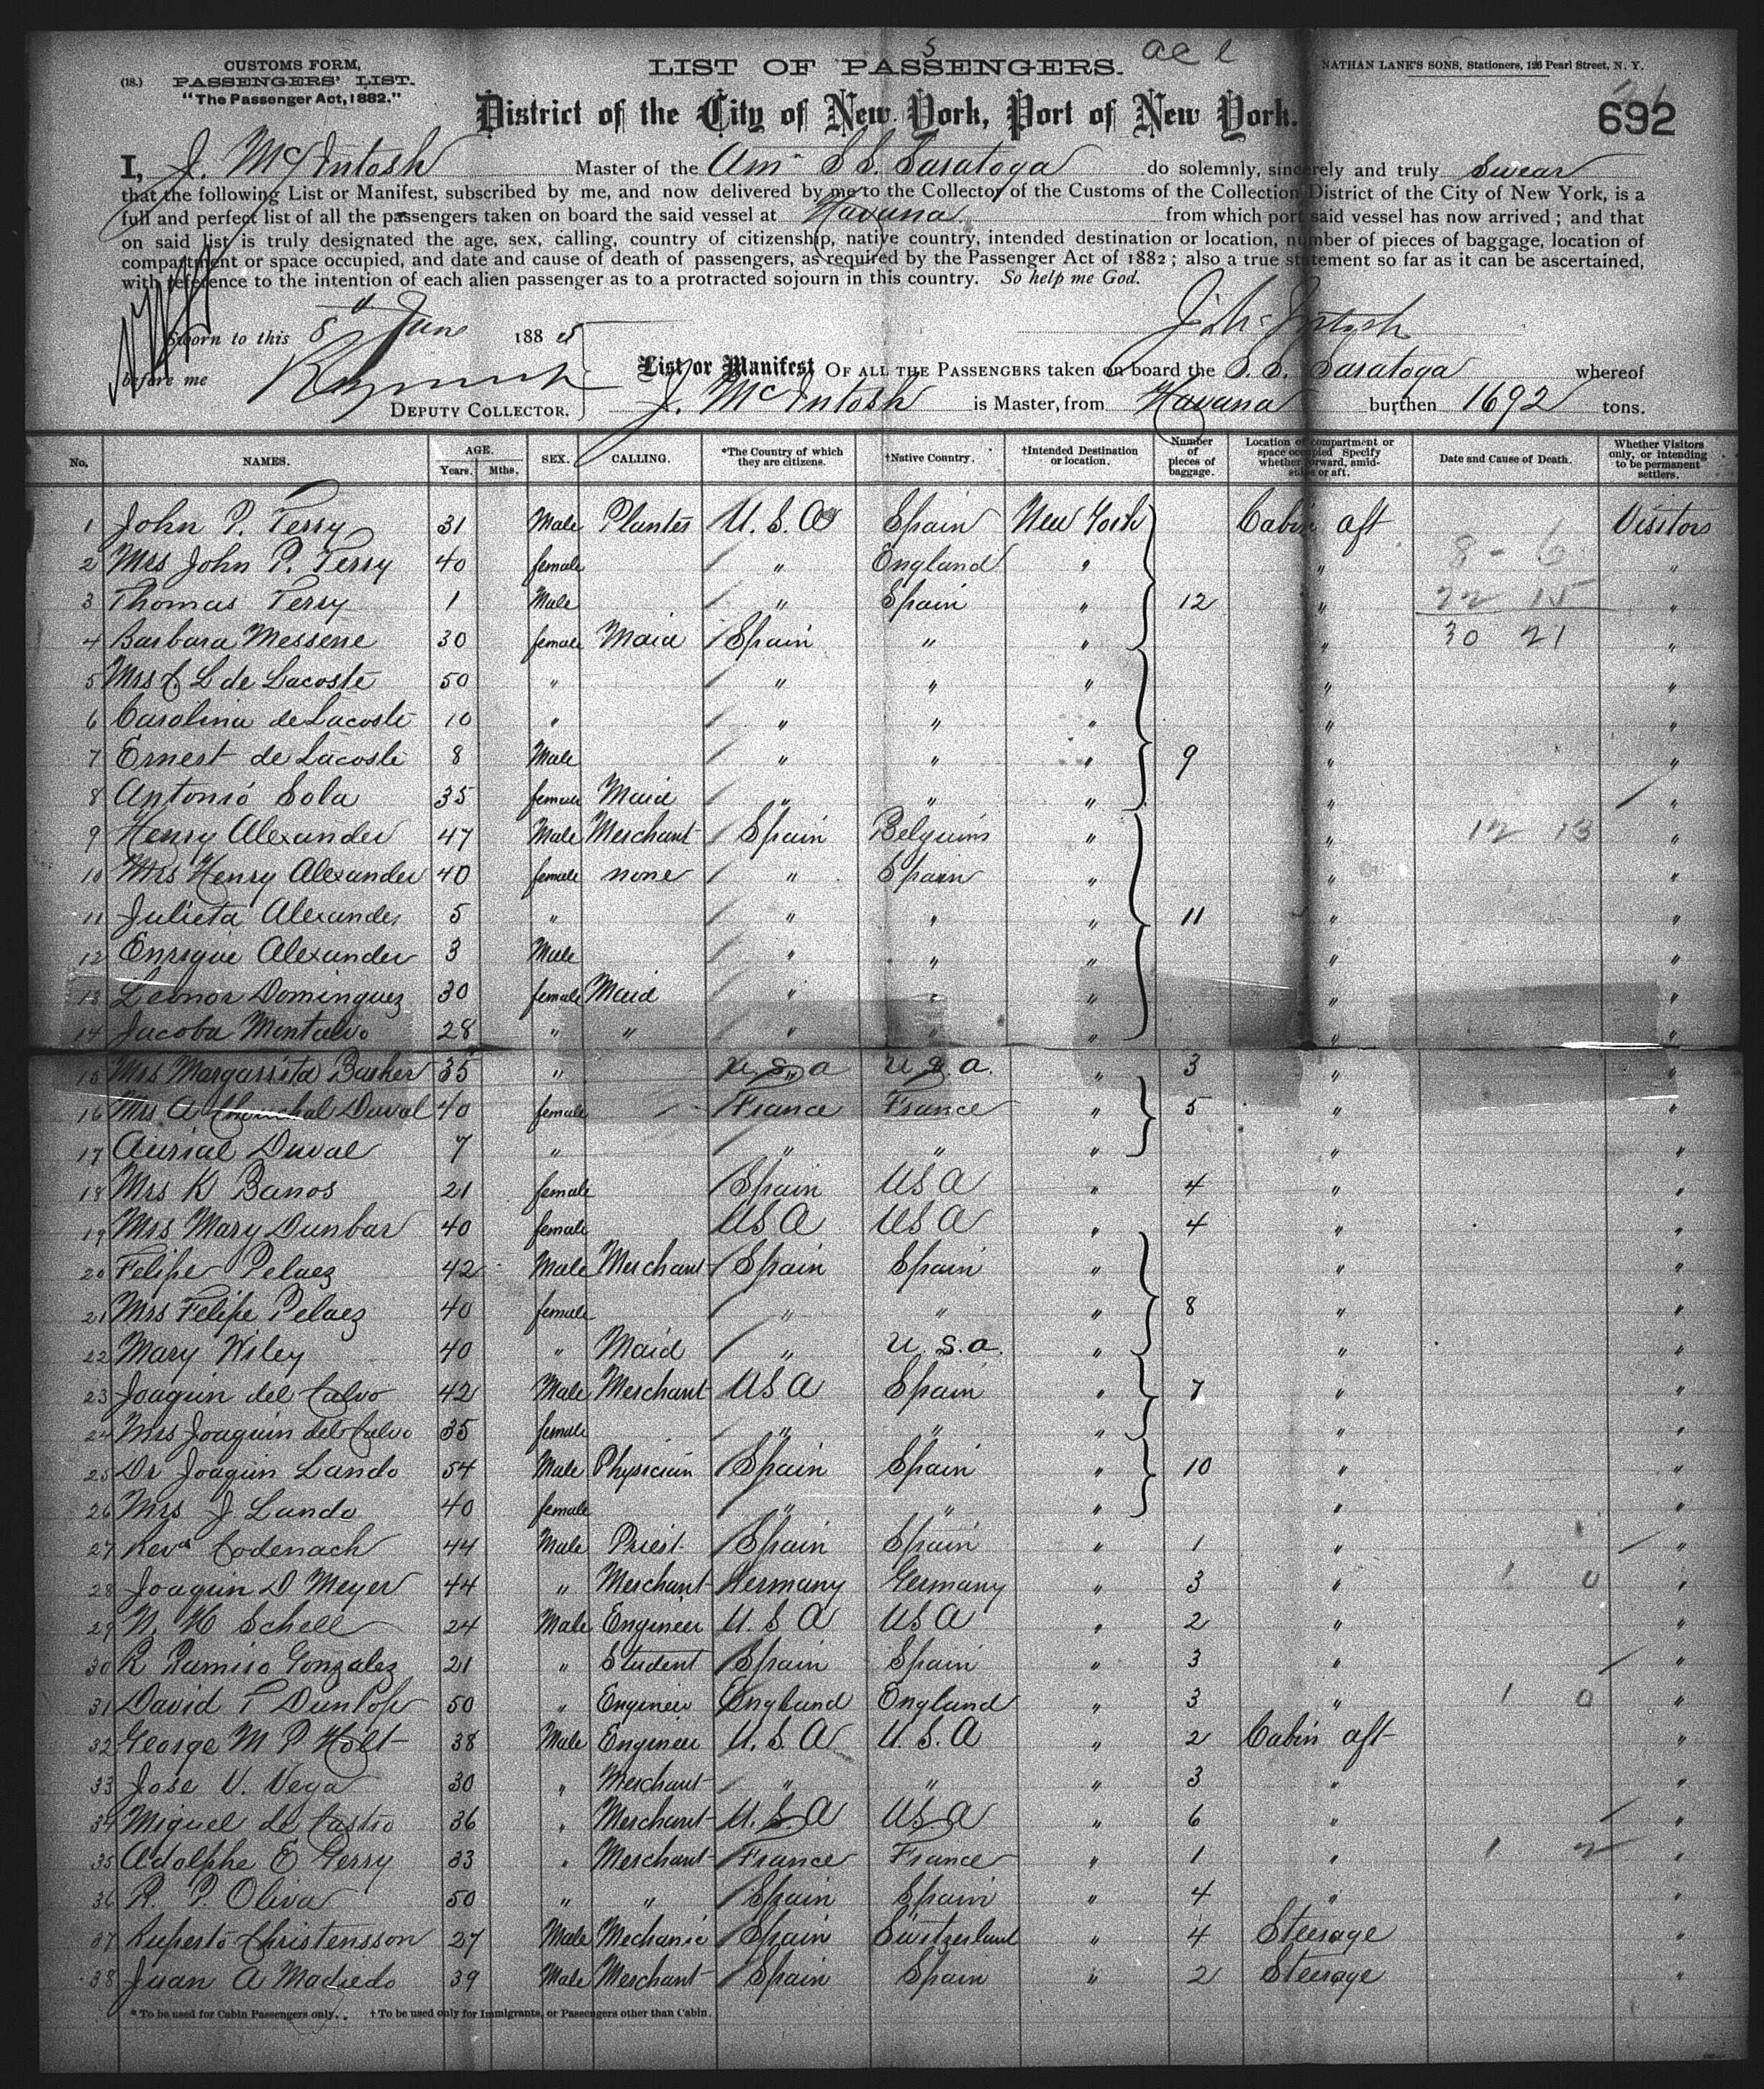 CUSTOMS FORM,
(18.) PASSENGERS' LIST.
"The Passenger Act, 1882."
LIST OF PASSENGERS.
NATHAN LANE'S SONS, Stationers, 126 Pearl Street, N. Y.
District of the City of New York, Port of New York.
692
I, J. McIntosh Master of the Am S.S. Saratoga do solemnly, sincerely and truly swear
that the following List or Manifest, subscribed by me, and now delivered by me to the Collector of the Customs of the Collection District of the City of New York, is a
full and perfect list of all the passengers taken on board the said vessel at Havana from which port said vessel has now arrived; and that
on said list is truly designated the age, sex, calling, country of citizenship, native country, intended destination or location, number of pieces of baggage, location of
compartment or space occupied, and date and cause of death of passengers, as required by the Passenger Act of 1882; also a true statement so far as it can be ascertained,
with reference to the intention of each alien passenger as to a protracted sojourn in this country. So help me God.
J. McIntosh
Sworn to this 8" June 1885
before me
DEPUTY COLLECTOR.
List or Manifest OF ALL THE PASSENGERS taken on board the S. S. Saratoga whereof
J. McIntosh is Master, from Havana burthen 1692 tons.
No. NAMES. AGE. Years. Mths. SEX. CALLING. *The Country of which they are citizens. †Native Country. †Intended Destination or location. Number of pieces of baggage. Location of compartment or space occupied Specify whether forward, amidships or aft. Date and Cause of Death. Whether Visitors only, or intending to be permanent settlers.
1 John P. Terry 31 Male Planter U.S.A Spain New York Cabin aft Visitors
2 Mrs John P. Terry 40 female " England " " 8 - 6 "
3 Thomas Terry 1 Male " Spain " 12 " 22 15 "
4 Barbara Messene 30 female Maid Spain " " " 30 21 "
5 Mrs L de Lacoste 50 " " " " " "
6 Carolina de Lacoste 10 " " " " " "
7 Ernest de Lacoste 8 Male " " " 9 " "
8 Antonió Sola 35 female Maid " " " " "
9 Henry Alexander 47 Male Merchant Spain Belguim " " 12 13
10 Mrs Henry Alexander 40 female none " Spain " " "
11 Julieta Alexander 5 " " " " 11 " "
12 Enrique Alexander 3 Male " " " " "
13 Leonor Dominguez 30 female Maid " " " " "
14 Jacoba Montalvo 28 " " " " " " "
15 Mrs Margarita Barker 35 " u.s.a u.s.a. " 3 " "
16 Mrs A Duval 40 female France France " 5 " "
17 Aurial Duval 7 " " " " " "
18 Mrs K Banos 21 female Spain USA " 4 " "
19 Mrs Mary Dunbar 40 female USA USA " 4 " "
20 Felipe Pelaez 42 Male Merchant Spain Spain " " "
21 Mrs Felipe Pelaez 40 female " " " 8 " "
22 Mary Wiley 40 " Maid " u.s.a. " " "
23 Joaquin del Calvo 42 Male Merchant USA Spain " 7 " "
24 Mrs Joaquin del Calvo 35 female " " " " "
25 Dr Joaquin Lando 54 Male Physician Spain Spain " 10 " "
26 Mrs J Lando 40 female " " " " "
27 Revd Codenach 44 Male Priest Spain Spain " 1 " "
28 Joaquin D Meyer 44 " Merchant Germany Germany " 3 " 1 0 "
29 N. H Schell 24 Male Engineer U.S.A USA " 2 " "
30 R Ramiro Gonzalez 21 " Student Spain Spain " 3 " "
31 David T Dunlop 50 " Engineer England England " 3 " 1 0 "
32 George M P Holt 38 Male Engineer U.S.A U.S.A " 2 Cabin aft "
33 Jose V. Vega 30 " Merchant " " " 3 " "
34 Miguel de Castro 36 " Merchant U.S.A USA " 6 " "
35 Adolphe E Terry 33 " Merchant France France " 1 " 1 2 "
36 R. P. Oliva 50 " " Spain Spain " 4 " "
37 Ruperto Christensson 27 Male Mechanic Spain Switzerland " 4 Steerage "
38 Juan A Madredo 39 Male Merchant Spain Spain " 2 Steerage "
* To be used for Cabin Passengers only. † To be used only for Immigrants, or Passengers other than Cabin.